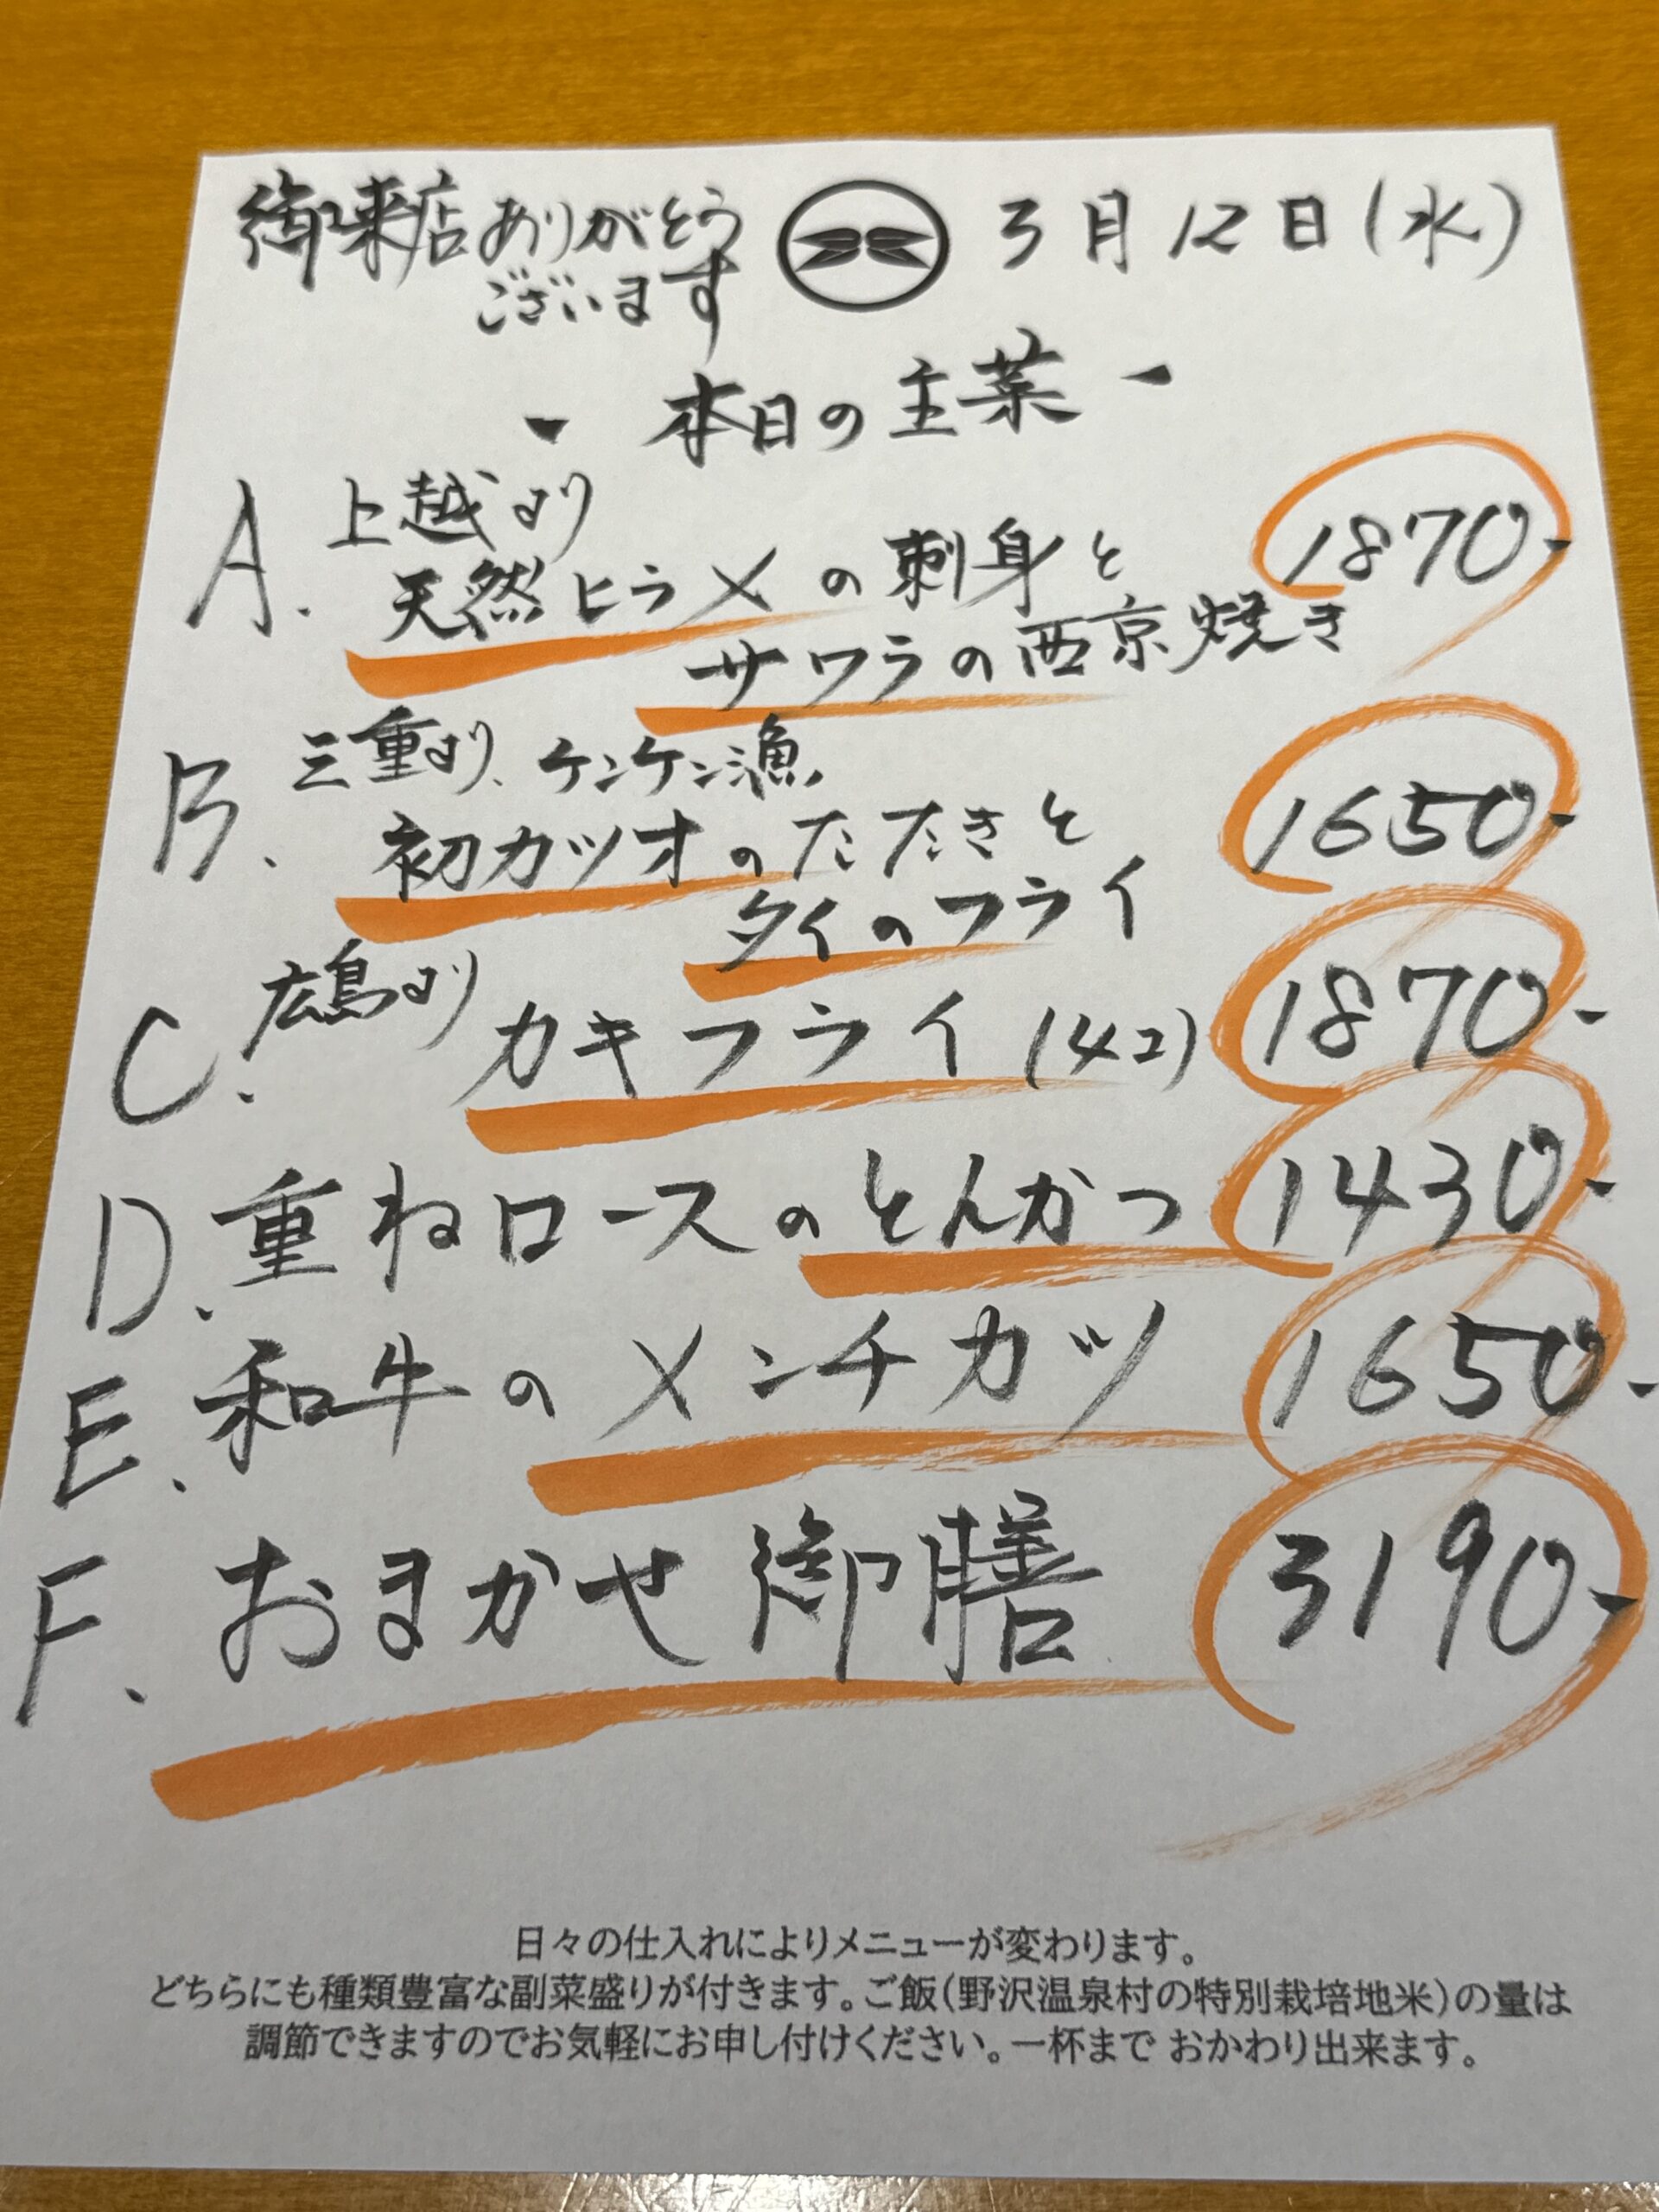 御来店ありがとう
ございます
3月12日(水)
- 本日の主菜 -
A. 上越より
天然ヒラメの刺身と
サワラの西京焼き
1870-
B. 三重より、ケンケン漁
初カツオのたたきと
タイのフライ
1650-
C. 広島より
カキフライ(4コ) 1870-
D. 重ねロースのとんかつ 1430-
E. 和牛のメンチカツ 1650-
F. おまかせ御膳 3190-
日々の仕入れによりメニューが変わります。
どちらにも種類豊富な副菜盛りが付きます。ご飯(野沢温泉村の特別栽培地米)の量は
調節できますのでお気軽にお申し付けください。一杯まで おかわり出来ます。